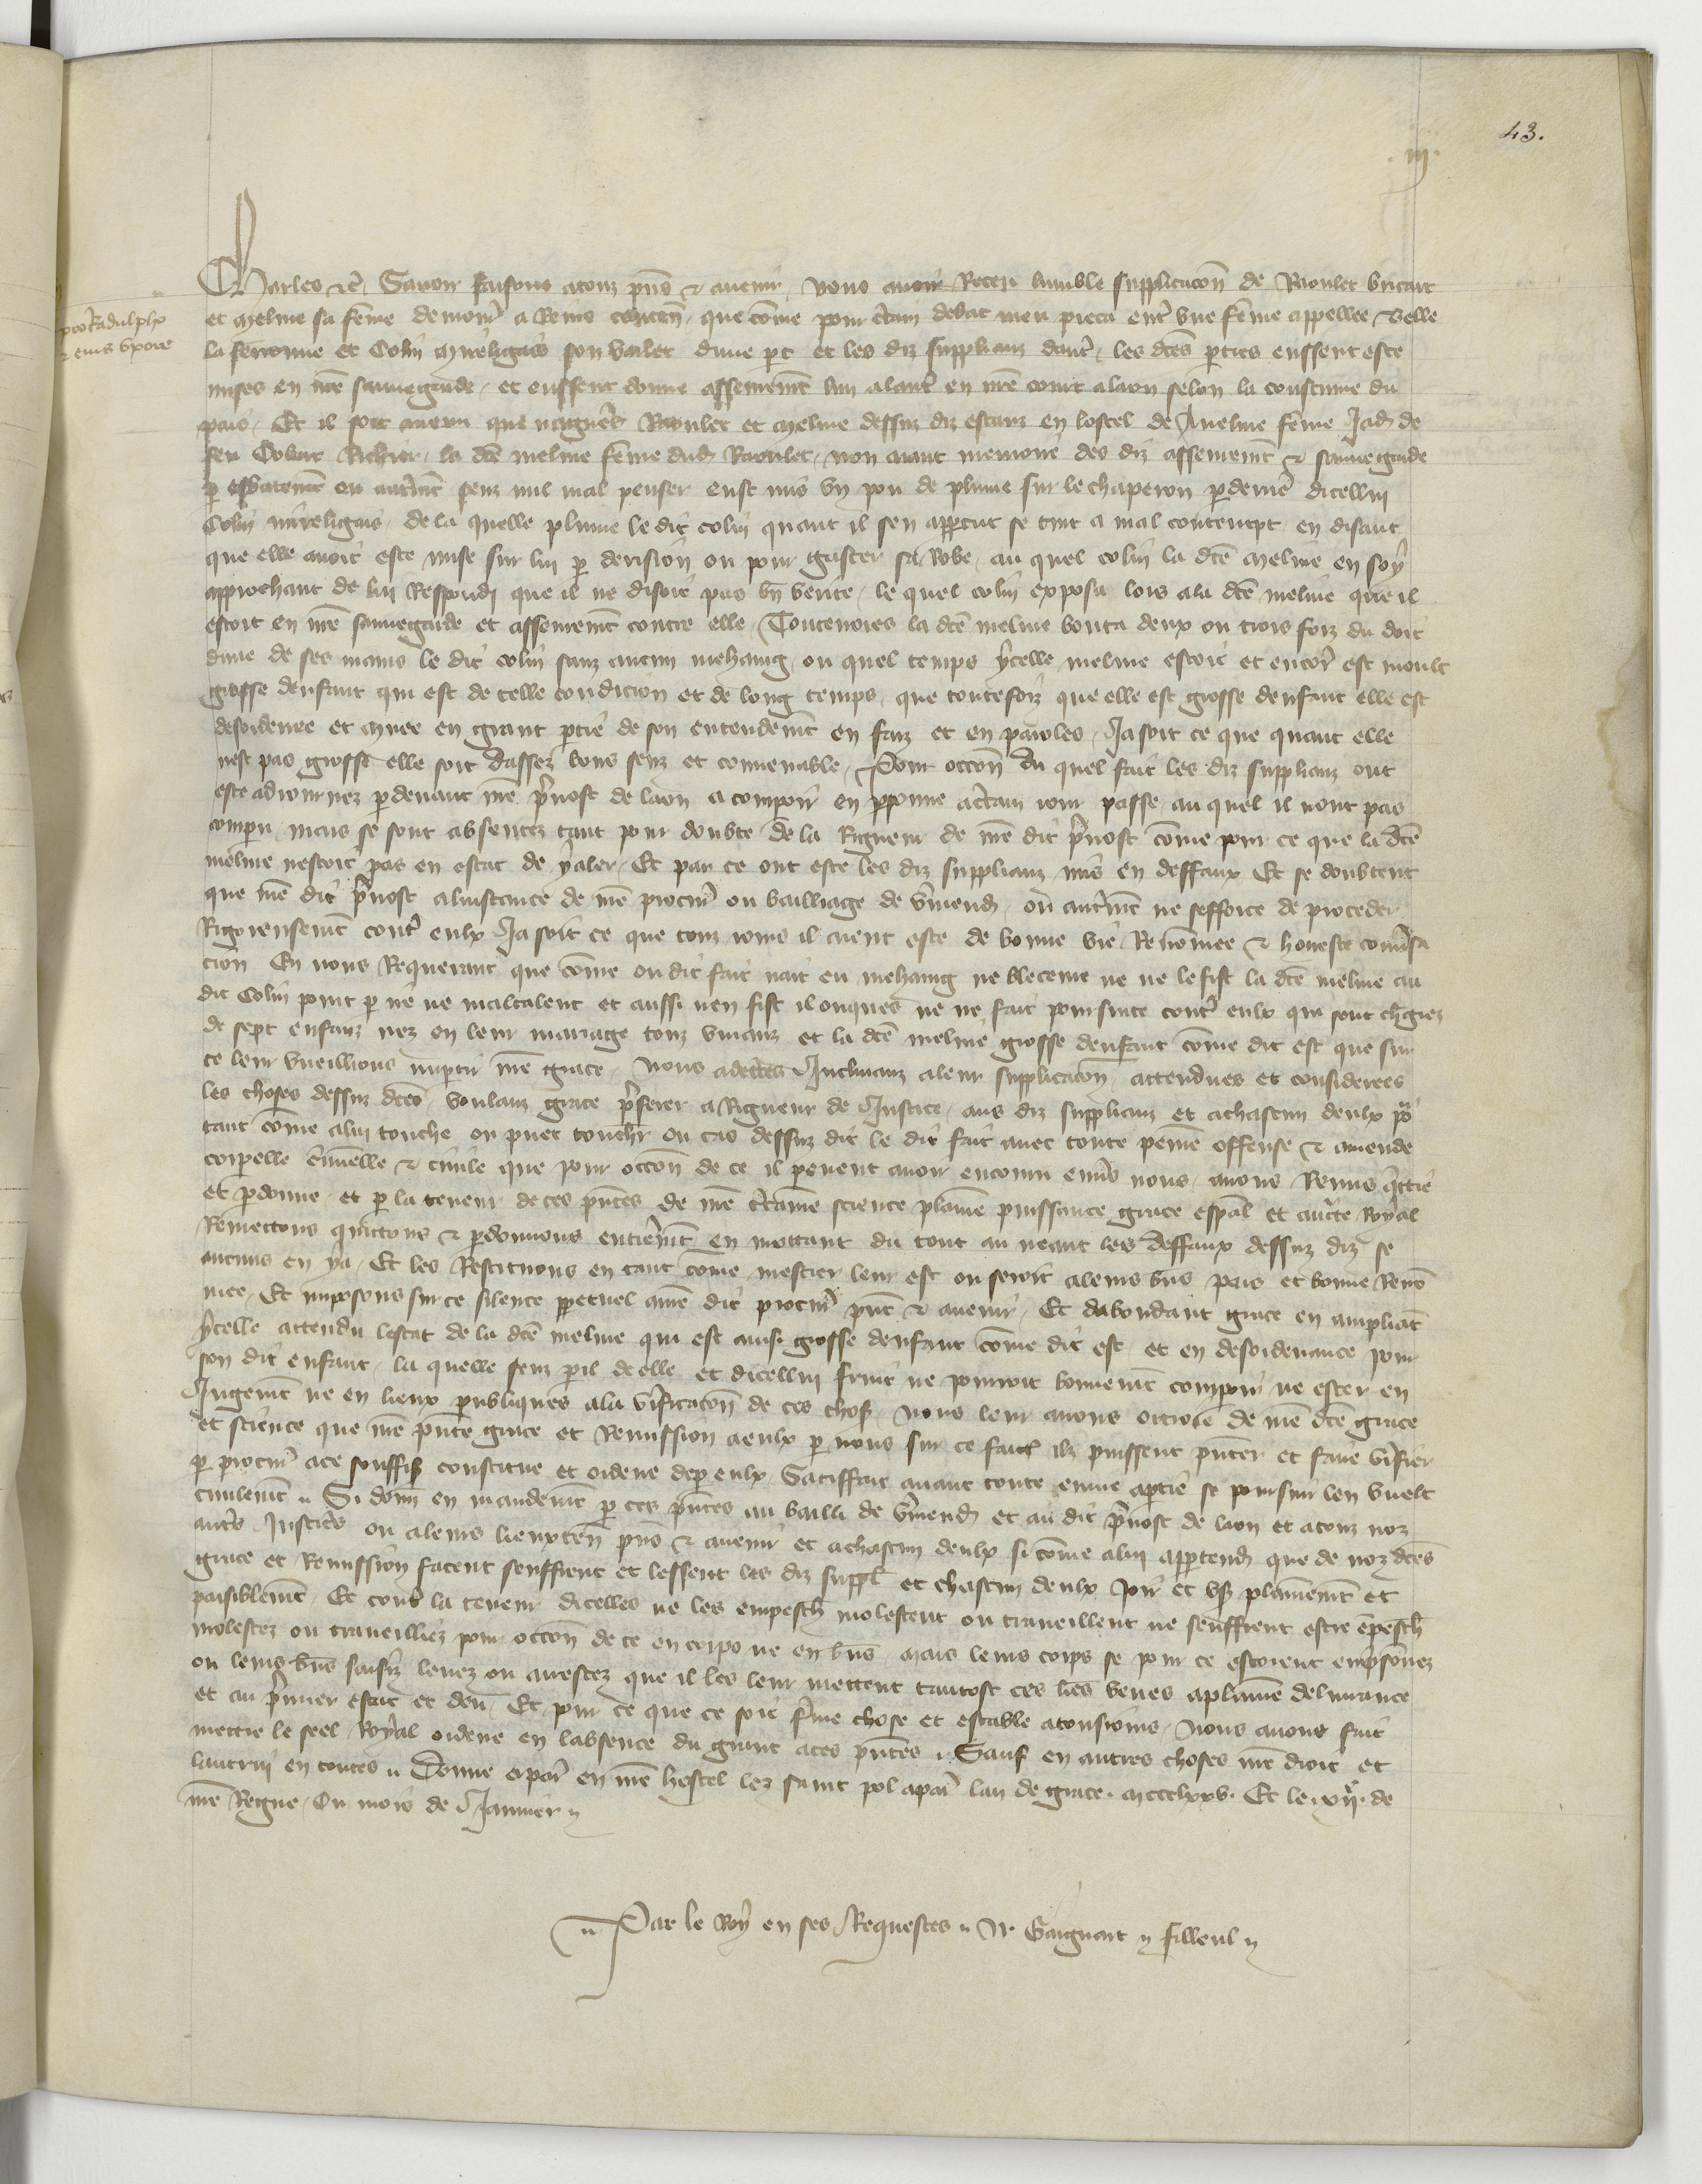 43.
.III.
pro Radulpho
et eius uxore
Charles etc. Savoir faisons a touz pns et avenir, nous avoir receu lumble supplicacon de Raoulet
et Meline sa feme demour a Reins conten, que come pour certain debat meu pieca entre une feme appellee
la ferronne et Colin son vallet dune pt et les diz supplians dautre, les dces parties eussent este
mises en nre sauvegarde, et eussent donne assemement lun a lautre en nre court a Laon selon la coustume du
pais, Et il soit avenu que nagueres Raoulet et Meline dessuz diz estanz en lostel de Aveline feme jad de
feu la dce Meline feme dud Raoulet, non aiant memoire des diz assemement et sauvegarde
p esbatement ou autrement senz nul mal penser eust mis un pou de plume sur le chaperon p derrie dicellui
Colin de la quelle plume le dit Colin quant il sen appercut se tint a mal contempt en disant
que elle avoit este mise sur lui p derision ou pour gaster sa robe, au quel Colin la dce Meline en soy
approchant de lui respondi que il ne disoit pas verite, le quel Colin exposa lors a la dce Meline que il
estoit en nre sauvegarde et assemement contre elle, Toutevoies la dce Meline bouta deux ou trois foiz du doit
dune de ses mains le dit Colin sanz aucun mehaing, ou quel temps ycelle Meline estoit et encor est moult
grosse denfant qui est de telle condicion et de long temps, que toutefoiz que elle est grosse denfant elle est
desordenee et muee en grant ptie de son entendement en faiz et en paroles, Ja soit ce que quant elle
nest pas grosse elle soit dassez bons senz et convenable, Pour occon du quel fait les diz supplianz ont
este adiournez p devant nre prevost de Laon a comparoir en personne a certain jour passe au quel il nont pas
compu, mais se sont absentez tant pour doubte de la rigueur de nre dit prevost come pour ce que la dce
Meline nestoit pas en estat de y aler, Et par ce ont este les diz supplianz mis en deffaux Et se doubtent
que nre dit prevost a linstance de nre procur ou bailliage de Vermend, ou autrement ne sefforce de proceder
rigoreusement contre eulx Ja soit ce que touz jours il aient este de bonne vie renommee et honeste conversa
cion En nous requerant que come ou dit fait nait eu mehaing ne bleceure ne ne le fist la dce Meline au
dit Colin point p ire ne maltalent et aussi nen fist il onques ne ne fait poursuite contre eulx qui sont chargiez
de sept enfanz nez en leur mariage touz vivanz et la dce Meline grosse denfant come dit est que sur
ce leur vueillions impartir nre grace, Nous adecertes inclinanz a leur supplicacon, attendues et considerees
les choses dessuz dces, voulanz grace preferer a rigueur de justice, aus diz supplianz et a chascun deulx pour
tant come a lui touche ou puet toucher ou cas dessuz dit le dit fait avec toute peine offense et amende
corporelle criminelle et civile que pour occon de ce il peuent avoir encouru envers nous, avons remis quittie
et pardonne, et p la teneur de ces pntes de nre certaine science plaine puissance grace espal et auctorite royal
remettons quittons et pardonnons entierement en mettant du tout au neant les deffaux dessuz diz se
aucuns en y a, Et les restituons en tant come mestier leur est ou seroit a leurs biens pais et bonne reno
mee, Et imposons sur ce silence perpetuel a nre dit procur pnt et avenir, Et dabondant grace en ampliant
ycelle attendu lestat de la dce Meline qui est ainsi grosse denfant come dit est, et en desordenance pour
son dit enfant, la quelle senz peril de elle et dicellui fruit ne pourroit bonnement comparoir ne ester en
jugement ne en lieux publiques a la verificacon de ces choses, Nous leur avons ottroie de nre dce grace
et science que nre pnte grace et remission a eulx p nous sur ce faite ilz puissent presenter et faire verifier
p procur a ce souffis constitue et ordene de p eulx, Satiffait avant toute euvre a partie se poursuir len vuelt
civilement. Si donn en mandement p ces pntes au bailli de Vermend et au dit prevost de Laon et a touz noz
autres justiciers ou a leurs lieuxten pns et avenir et a chascun deulx si come a lui appartend que de noz dces
grace et remission facent seuffrent et lessent les diz suppl et chascun deulx joir et user plainement et
paisiblement, Et contre la teneur dicelles ne les empesch molestent ou traveillent ne seuffrent estre empesch
molestez ou traveilliez pour occon de ce en corps ne en biens Mais leurs corps se pour ce estoient emprisonnez
ou leurs biens saisiz levez ou arrestez que il les leur mettent tantost ces lres veues a plaine delivrance
et au premier estat et deu, Et pour ce que ce soit ferme chose et estable a tousiours, Nous avons fait
mettre le seel royal ordene en labsence du grant a ces pntes. Sauf en autres choses nre droit et
lautrui en toutes. Donne a Paris en nre hostel lez saint Pol a Paris lan de grace. MCCCLXXV. Et le. XIIe. de
nre regne, Ou mois de Janvier
Par le Roy en ses Requestes. Gaignart filleul